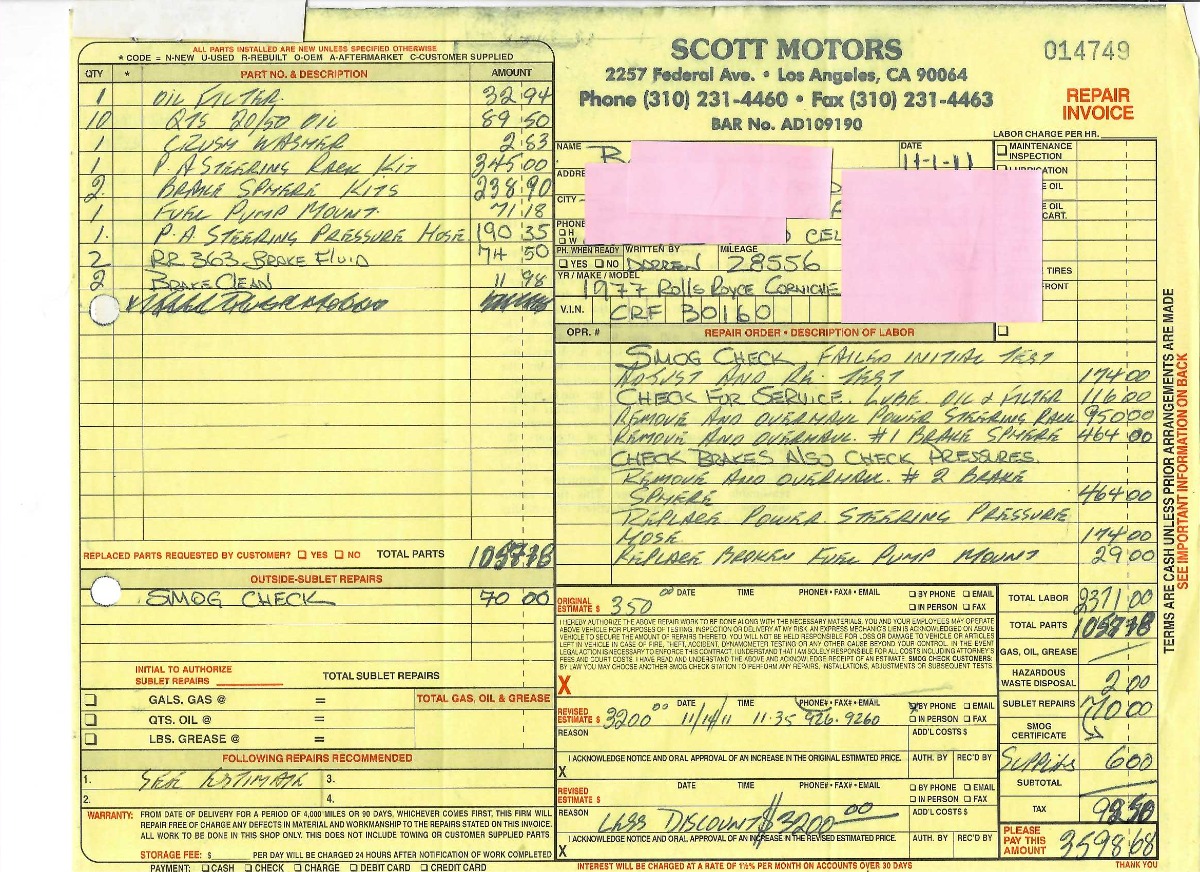 ALL PARTS INSTALLED ARE NEW UNLESS SPECIFIED OTHERWISE
* CODE = N-NEW U-USED R-REBUILT O-OEM A-AFTERMARKET C-CUSTOMER SUPPLIED
QTY * PART NO. & DESCRIPTION AMOUNT
1 OIL FILTER 32 94
10 QTS 20/50 OIL 89 50
1 CRUSH WASHER 2 83
1 P.A STEERING RACK KIT 345 00
2 BRAKE SPHERE KITS 238 90
1 FUEL PUMP MOUNT 71 18
1 P.A STEERING PRESSURE HOSE 190 35
2 RR 363 BRAKE FLUID 74 50
2 BRAKE CLEAN 11 98
REPLACED PARTS REQUESTED BY CUSTOMER? YES NO TOTAL PARTS
OUTSIDE-SUBLET REPAIRS
SMOG CHECK 70 00
INITIAL TO AUTHORIZE
SUBLET REPAIRS TOTAL SUBLET REPAIRS
GALS. GAS @ = TOTAL GAS, OIL & GREASE
QTS. OIL @ =
LBS. GREASE @ =
FOLLOWING REPAIRS RECOMMENDED
1. SEE ESTIMATE 3.
2. 4.
WARRANTY: FROM DATE OF DELIVERY FOR A PERIOD OF 4,000 MILES OR 90 DAYS, WHICHEVER COMES FIRST, THIS FIRM WILL
REPAIR FREE OF CHARGE ANY DEFECTS IN MATERIAL AND WORKMANSHIP TO THE REPAIRS STATED ON THIS INVOICE.
ALL WORK TO BE DONE IN THIS SHOP ONLY. THIS DOES NOT INCLUDE TOWING OR CUSTOMER SUPPLIED PARTS
STORAGE FEE: $ PER DAY WILL BE CHARGED 24 HOURS AFTER NOTIFICATION OF WORK COMPLETED
PAYMENT: CASH CHECK CHARGE DEBIT CARD CREDIT CARD
SCOTT MOTORS
014749
2257 Federal Ave. • Los Angeles, CA 90064
Phone (310) 231-4460 • Fax (310) 231-4463
BAR No. AD109190
REPAIR
INVOICE
LABOR CHARGE PER HR.
NAME R. DATE 11-1-11
MAINTENANCE
INSPECTION
LUBRICATION
ADDRE
OIL
CITY
OIL
CART.
PHONE
H
W
CEL
PH. WHEN READY WRITTEN BY MILEAGE
YES NO DARREN 28556
TIRES
YR / MAKE / MODEL
FRONT
1977 ROLLS ROYCE CORNICHE
V.I.N. CRF 30160
OPR. # REPAIR ORDER • DESCRIPTION OF LABOR
SMOG CHECK, FAILED INITIAL TEST
ADJUST AND RE. TEST 174 00
CHECK FOR SERVICE. LUBE. OIL & FILTER 116 00
REMOVE AND OVERHAUL POWER STEERING RACK 950 00
REMOVE AND OVERHAUL. #1 BRAKE SPHERE 464 00
CHECK BRAKES ALSO CHECK PRESSURES.
REMOVE AND OVERHAUL. # 2 BRAKE
SPHERE 464 00
REPLACE POWER STEERING PRESSURE
HOSE 174 00
REPLACE BROKEN FUEL PUMP MOUNT 29 00
ORIGINAL
ESTIMATE $ 350 00 DATE TIME PHONE# • FAX# • EMAIL BY PHONE EMAIL
IN PERSON FAX
I HEREBY AUTHORIZE THE ABOVE REPAIR WORK TO BE DONE ALONG WITH THE NECESSARY MATERIALS. YOU AND YOUR EMPLOYEES MAY OPERATE
ABOVE VEHICLE FOR PURPOSES OF TESTING, INSPECTION OR DELIVERY AT MY RISK. AN EXPRESS MECHANIC'S LIEN IS ACKNOWLEDGED ON ABOVE
VEHICLE TO SECURE THE AMOUNT OF REPAIRS THERETO. YOU WILL NOT BE HELD RESPONSIBLE FOR LOSS OR DAMAGE TO VEHICLE OR ARTICLES
LEFT IN VEHICLE IN CASE OF FIRE, THEFT, ACCIDENT, DYNAMOMETER TESTING OR ANY OTHER CAUSE BEYOND YOUR CONTROL. IN THE EVENT
LEGAL ACTION IS NECESSARY TO ENFORCE THIS CONTRACT, I UNDERSTAND THAT I AM SOLELY RESPONSIBLE FOR ALL COSTS INCLUDING ATTORNEY'S
FEES AND COURT COSTS. I HAVE READ AND UNDERSTAND THE ABOVE AND ACKNOWLEDGE RECEIPT OF AN ESTIMATE. SMOG CHECK CUSTOMERS:
BY LAW YOU MAY CHOOSE ANOTHER SMOG CHECK STATION TO PERFORM ANY REPAIRS, INSTALLATIONS, ADJUSTMENTS OR SUBSEQUENT TESTS.
X
REVISED
ESTIMATE $ 3200 00 DATE 11/14/11 TIME 11:35 PHONE# • FAX# • EMAIL 926-9260 BY PHONE EMAIL
IN PERSON FAX
REASON ADD'L COSTS $
I ACKNOWLEDGE NOTICE AND ORAL APPROVAL OF AN INCREASE IN THE ORIGINAL ESTIMATED PRICE. AUTH. BY REC'D BY
X
REVISED
ESTIMATE $ DATE TIME PHONE# • FAX# • EMAIL BY PHONE EMAIL
IN PERSON FAX
REASON LESS DISCOUNT $3200 00 ADD'L COSTS $
I ACKNOWLEDGE NOTICE AND ORAL APPROVAL OF AN INCREASE IN THE REVISED ESTIMATED PRICE. AUTH. BY REC'D BY
X
INTEREST WILL BE CHARGED AT A RATE OF 1½% PER MONTH ON ACCOUNTS OVER 30 DAYS
TOTAL LABOR 2371 00
TOTAL PARTS
GAS, OIL, GREASE
HAZARDOUS
WASTE DISPOSAL 2 00
SUBLET REPAIRS 70 00
SMOG
CERTIFICATE
SUPPLIES 6 00
SUBTOTAL
TAX
PLEASE
PAY THIS
AMOUNT 3598 68
THANK YOU
TERMS ARE CASH UNLESS PRIOR ARRANGEMENTS ARE MADE
SEE IMPORTANT INFORMATION ON BACK